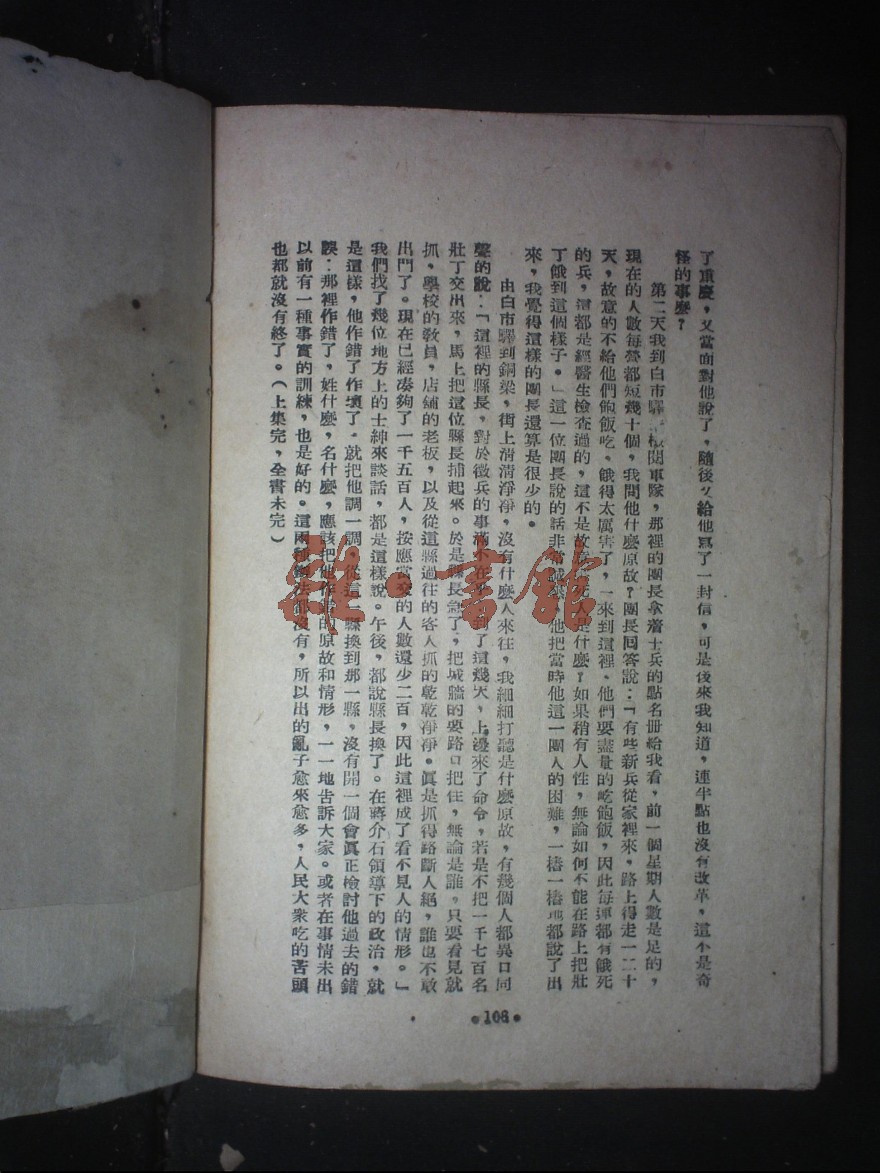 了重慶，又當面對他說了，隨後又給他寫了一封信，可是後來我知道，連半點也沒有改革，這不是奇
怪的事麼？
第二天我到白市驛 檢閱軍隊，那裡的團長拿着士兵的點名册給我看，前一個星期人數是足的，
現在的人數每營都短幾十個，我問他什麼原故？團長回答說：「有些新兵從家裡來，路上得走一二十
天，故意的不給他們飽飯吃，餓得太厲害了，一來到這裡，他們要盡量的吃飽飯，因此每連都有餓死
的兵，這都是經醫生檢查過的，這不是故 人是什麼？如果稍有人性，無論如何不能在路上把壯
丁餓到這個樣子。」這一位團長說的話非常 他把當時他這一團人的困難，一樁一樁地都說了出
來，我覺得這樣的團長還算是很少的。
由白市驛到銅梁，街上清清淨淨，沒有什麼人來往，我細細打聽是什麼原故，有幾個人都異口同
聲的說：「這裡的縣長，對於徵兵的事滿不在乎，到了這幾天，上邊來了命令，若是不把一千七百名
壯丁交出來，馬上把這位縣長捕起來。於是縣長急了，把城牆的要路口把住，無論是誰，只要看見就
抓，學校的教員，店舖的老板，以及從這縣過往的客人抓的乾乾淨淨。眞是抓得路斷人絕，誰也不敢
出門了。現在已經凑夠了一千五百人，按應當交的人數還少二百，因此這裡成了看不見人的情形。」
我們找了幾位地方上的士紳來談話，都是這樣說。午後，都說縣長換了。在蔣介石領導下的政治，就
是這樣，他作錯了作壞了，就把他調一調，從這一縣換到那一縣，沒有開一個會眞正檢討他過去的錯
誤：那裡作錯了，姓什麼，名什麼，應該把他作錯的原故和情形，一一地告訴大家。或者在事情未出
以前有一種事實的訓練，也是好的。這兩種辦法都沒有，所以出的亂子愈來愈多，人民大衆吃的苦頭
也都就沒有終了。（上集完，全書未完）
•106•
雜·書館